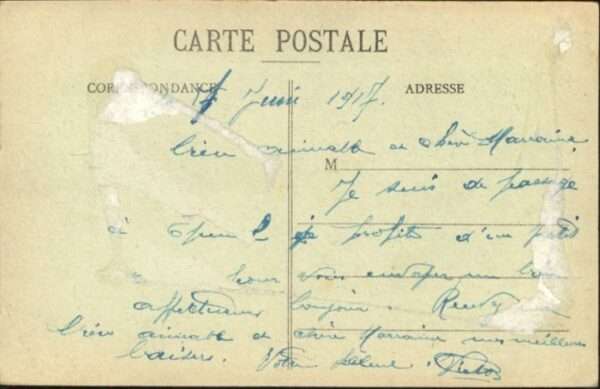 CARTE POSTALE
CORRESPONDANCE
ADRESSE
Juin 1917.
bien aimable et chère Marraine
M
Je suis de passage
à je profite d'un petit
pour vous envoyer un bon
affectueux bonjour.
bien aimable et chère Marraine mes meilleurs
baisers. Votre filleul.